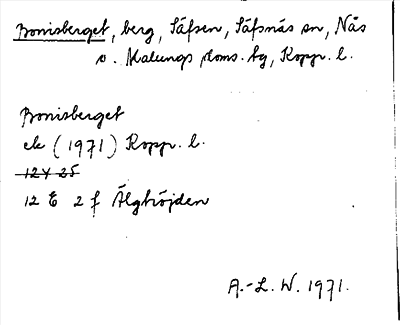 Bonisberget, berg, Säfsen, Säfsnäs sn, Nås
o. Malungs doms. tg, Kopp. l.
Bonisberget
ek (1971) Kopp. l.
12 Y 25
12 E 2 f Älghöjden
A.-L. W. 1971.